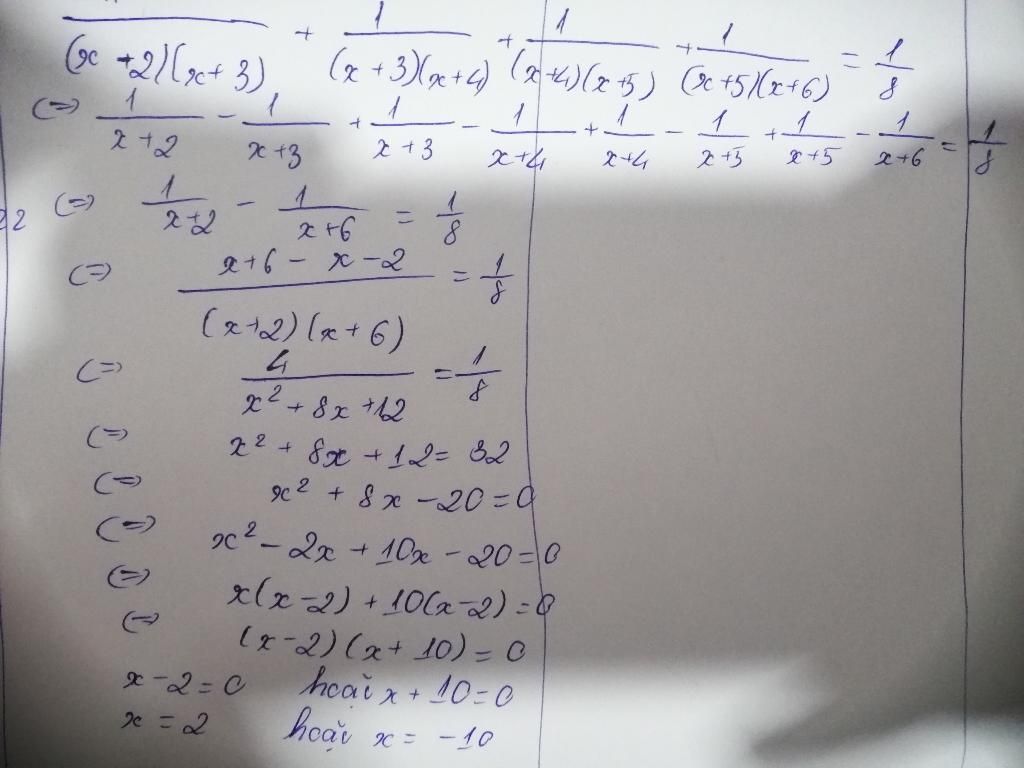 /(x+2)(x+3) + 1/(x+3)(x+4) + 1/(x+4)(x+5) + 1/(x+5)(x+6) = 1/8
(=) 1/x+2 - 1/x+3 + 1/x+3 - 1/x+4 + 1/x+4 - 1/x+5 + 1/x+5 - 1/x+6 = 1/8
22 (=) 1/x+2 - 1/x+6 = 1/8
(=) x+6 - x-2/(x+2)(x+6) = 1/8
(=) 4/x²+8x+12 = 1/8
(=) x² + 8x + 12 = 32
(=) x² + 8x - 20 = 0
(=) x² - 2x + 10x - 20 = 0
(=) x(x-2) + 10(x-2) = 0
(=) (x-2)(x+10) = 0
x-2=0 hoặc x+10=0
x=2 hoặc x= -10